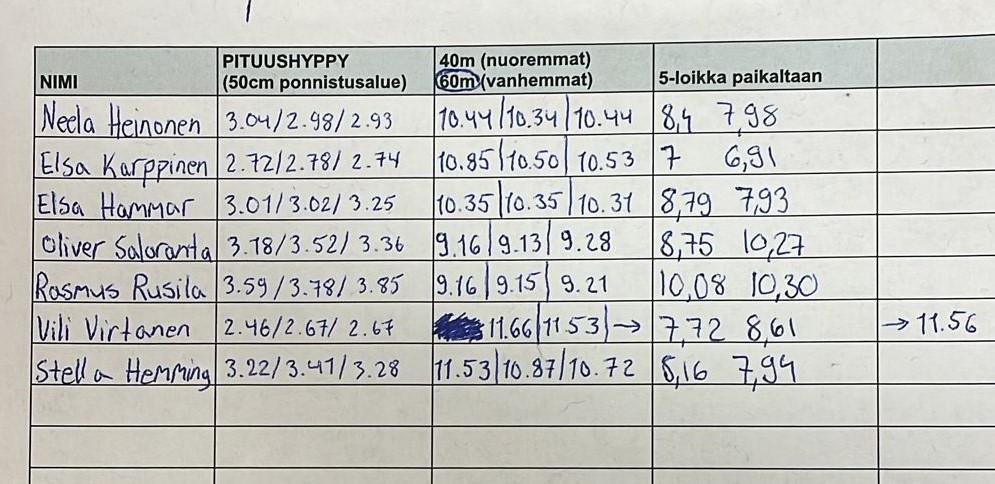 NIMI PITUUSHYPPY (50cm ponnistusalue) 40m (nuoremmat) 60m (vanhemmat) 5-loikka paikaltaan
Neela Heinonen 3.04/2.98/2.93 10.44/10.34/10.44 8,4 7,98
Elsa Karppinen 2.72/2.78/2.74 10.85/10.50/10.53 7 6,91
Elsa Hammar 3.01/3.02/3.25 10.35/10.35/10.31 8,79 7,93
Oliver Saloranta 3.18/3.52/3.36 9.16/9.13/9.28 8,75 10,27
Rasmus Rusila 3.59/3.78/3.85 9.16/9.15/9.21 10,08 10,30
Vili Virtanen 2.46/2.67/2.67 11.66/11.53/→ 7,72 8,61 →11.56
Stella Hemming 3.22/3.41/3.28 11.53/10.87/10.72 8,16 7,94